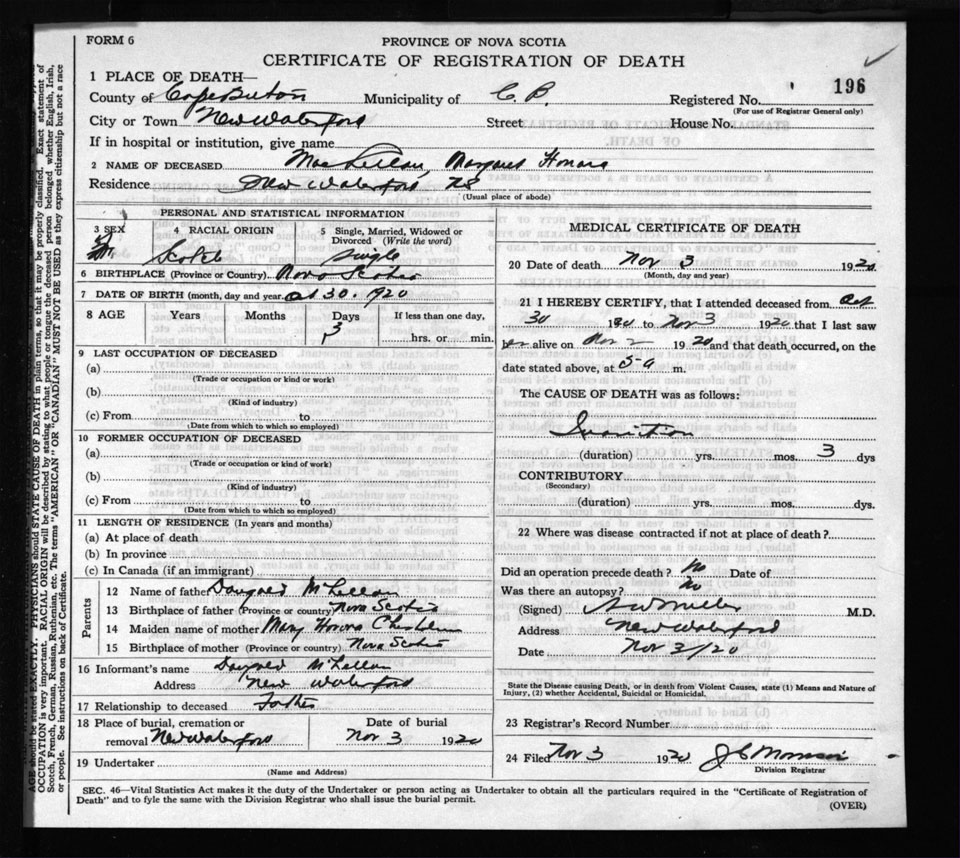 FORM 6
PROVINCE OF NOVA SCOTIA
CERTIFICATE OF REGISTRATION OF DEATH
196
1 PLACE OF DEATH—
County of Cape Breton Municipality of C. B. Registered No.
(For use of Registrar General only)
City or Town New Waterford Street House No.
If in hospital or institution, give name
2 NAME OF DECEASED MacLellan, Margaret Honora
Residence New Waterford NS
(Usual place of abode)
PERSONAL AND STATISTICAL INFORMATION
3 SEX 4 RACIAL ORIGIN 5 Single, Married, Widowed or Divorced (Write the word)
F Scotch Single
6 BIRTHPLACE (Province or Country) Nova Scotia
7 DATE OF BIRTH (month, day and year) Oct 30. 1920
8 AGE Years Months Days If less than one day,
3 hrs. or min.
9 LAST OCCUPATION OF DECEASED
(a)
(Trade or occupation or kind or work)
(b)
(Kind of industry)
(c) From to
(Date from which to which so employed)
10 FORMER OCCUPATION OF DECEASED
(a)
(Trade or occupation or kind of work)
(b)
(Kind of industry)
(c) From to
(Date from which to which so employed)
11 LENGTH OF RESIDENCE (In years and months)
(a) At place of death
(b) In province
(c) In Canada (if an immigrant)
Parents
12 Name of father Dougald McLellan
13 Birthplace of father (Province or country) Nova Scotia
14 Maiden name of mother Mary Honora Chisholm
15 Birthplace of mother (Province or country) Nova Scotia
16 Informant's name Dougald McLellan
Address New Waterford
17 Relationship to deceased Father
18 Place of burial, cremation or Date of burial
removal New Waterford Nov 3 1920
19 Undertaker
(Name and Address)
MEDICAL CERTIFICATE OF DEATH
20 Date of death Nov 3 1920
(Month, day and year)
21 I HEREBY CERTIFY, that I attended deceased from Oct
30 1920 to Nov 3 1920 that I last saw
her alive on Nov 2 1920 and that death occurred, on the
date stated above, at 5 a m.
The CAUSE OF DEATH was as follows:
Inanition
(duration) yrs. mos. 3 dys
CONTRIBUTORY
(Secondary)
(duration) yrs. mos. dys.
22 Where was disease contracted if not at place of death?
Did an operation precede death? No Date of
Was there an autopsy? No
(Signed) M.D.
Address New Waterford
Date Nov 3/20
State the Disease causing Death, or in death from Violent Causes, state (1) Means and Nature of
Injury, (2) whether Accidental, Suicidal or Homicidal.
23 Registrar's Record Number
24 Filed Nov 3 1920 J C Morrison
Division Registrar
SEC. 46—Vital Statistics Act makes it the duty of the Undertaker or person acting as Undertaker to obtain all the particulars required in the "Certificate of Registration of
Death" and to fyle the same with the Division Registrar who shall issue the burial permit.
(OVER)
AGE should be stated EXACTLY. PHYSICIANS should STATE CAUSE OF DEATH in plain terms, so that it may be properly classified. Exact statement of
OCCUPATION is very important. RACIAL ORIGIN will be described by stating to what people or tongue the deceased person belonged whether English, Irish,
Scotch, French, German, Russian, Ruthenian, etc. The terms "AMERICAN" OR "CANADIAN" MUST NOT BE USED as they express citizenship but not a race
or people. See instructions on back of Certificate.